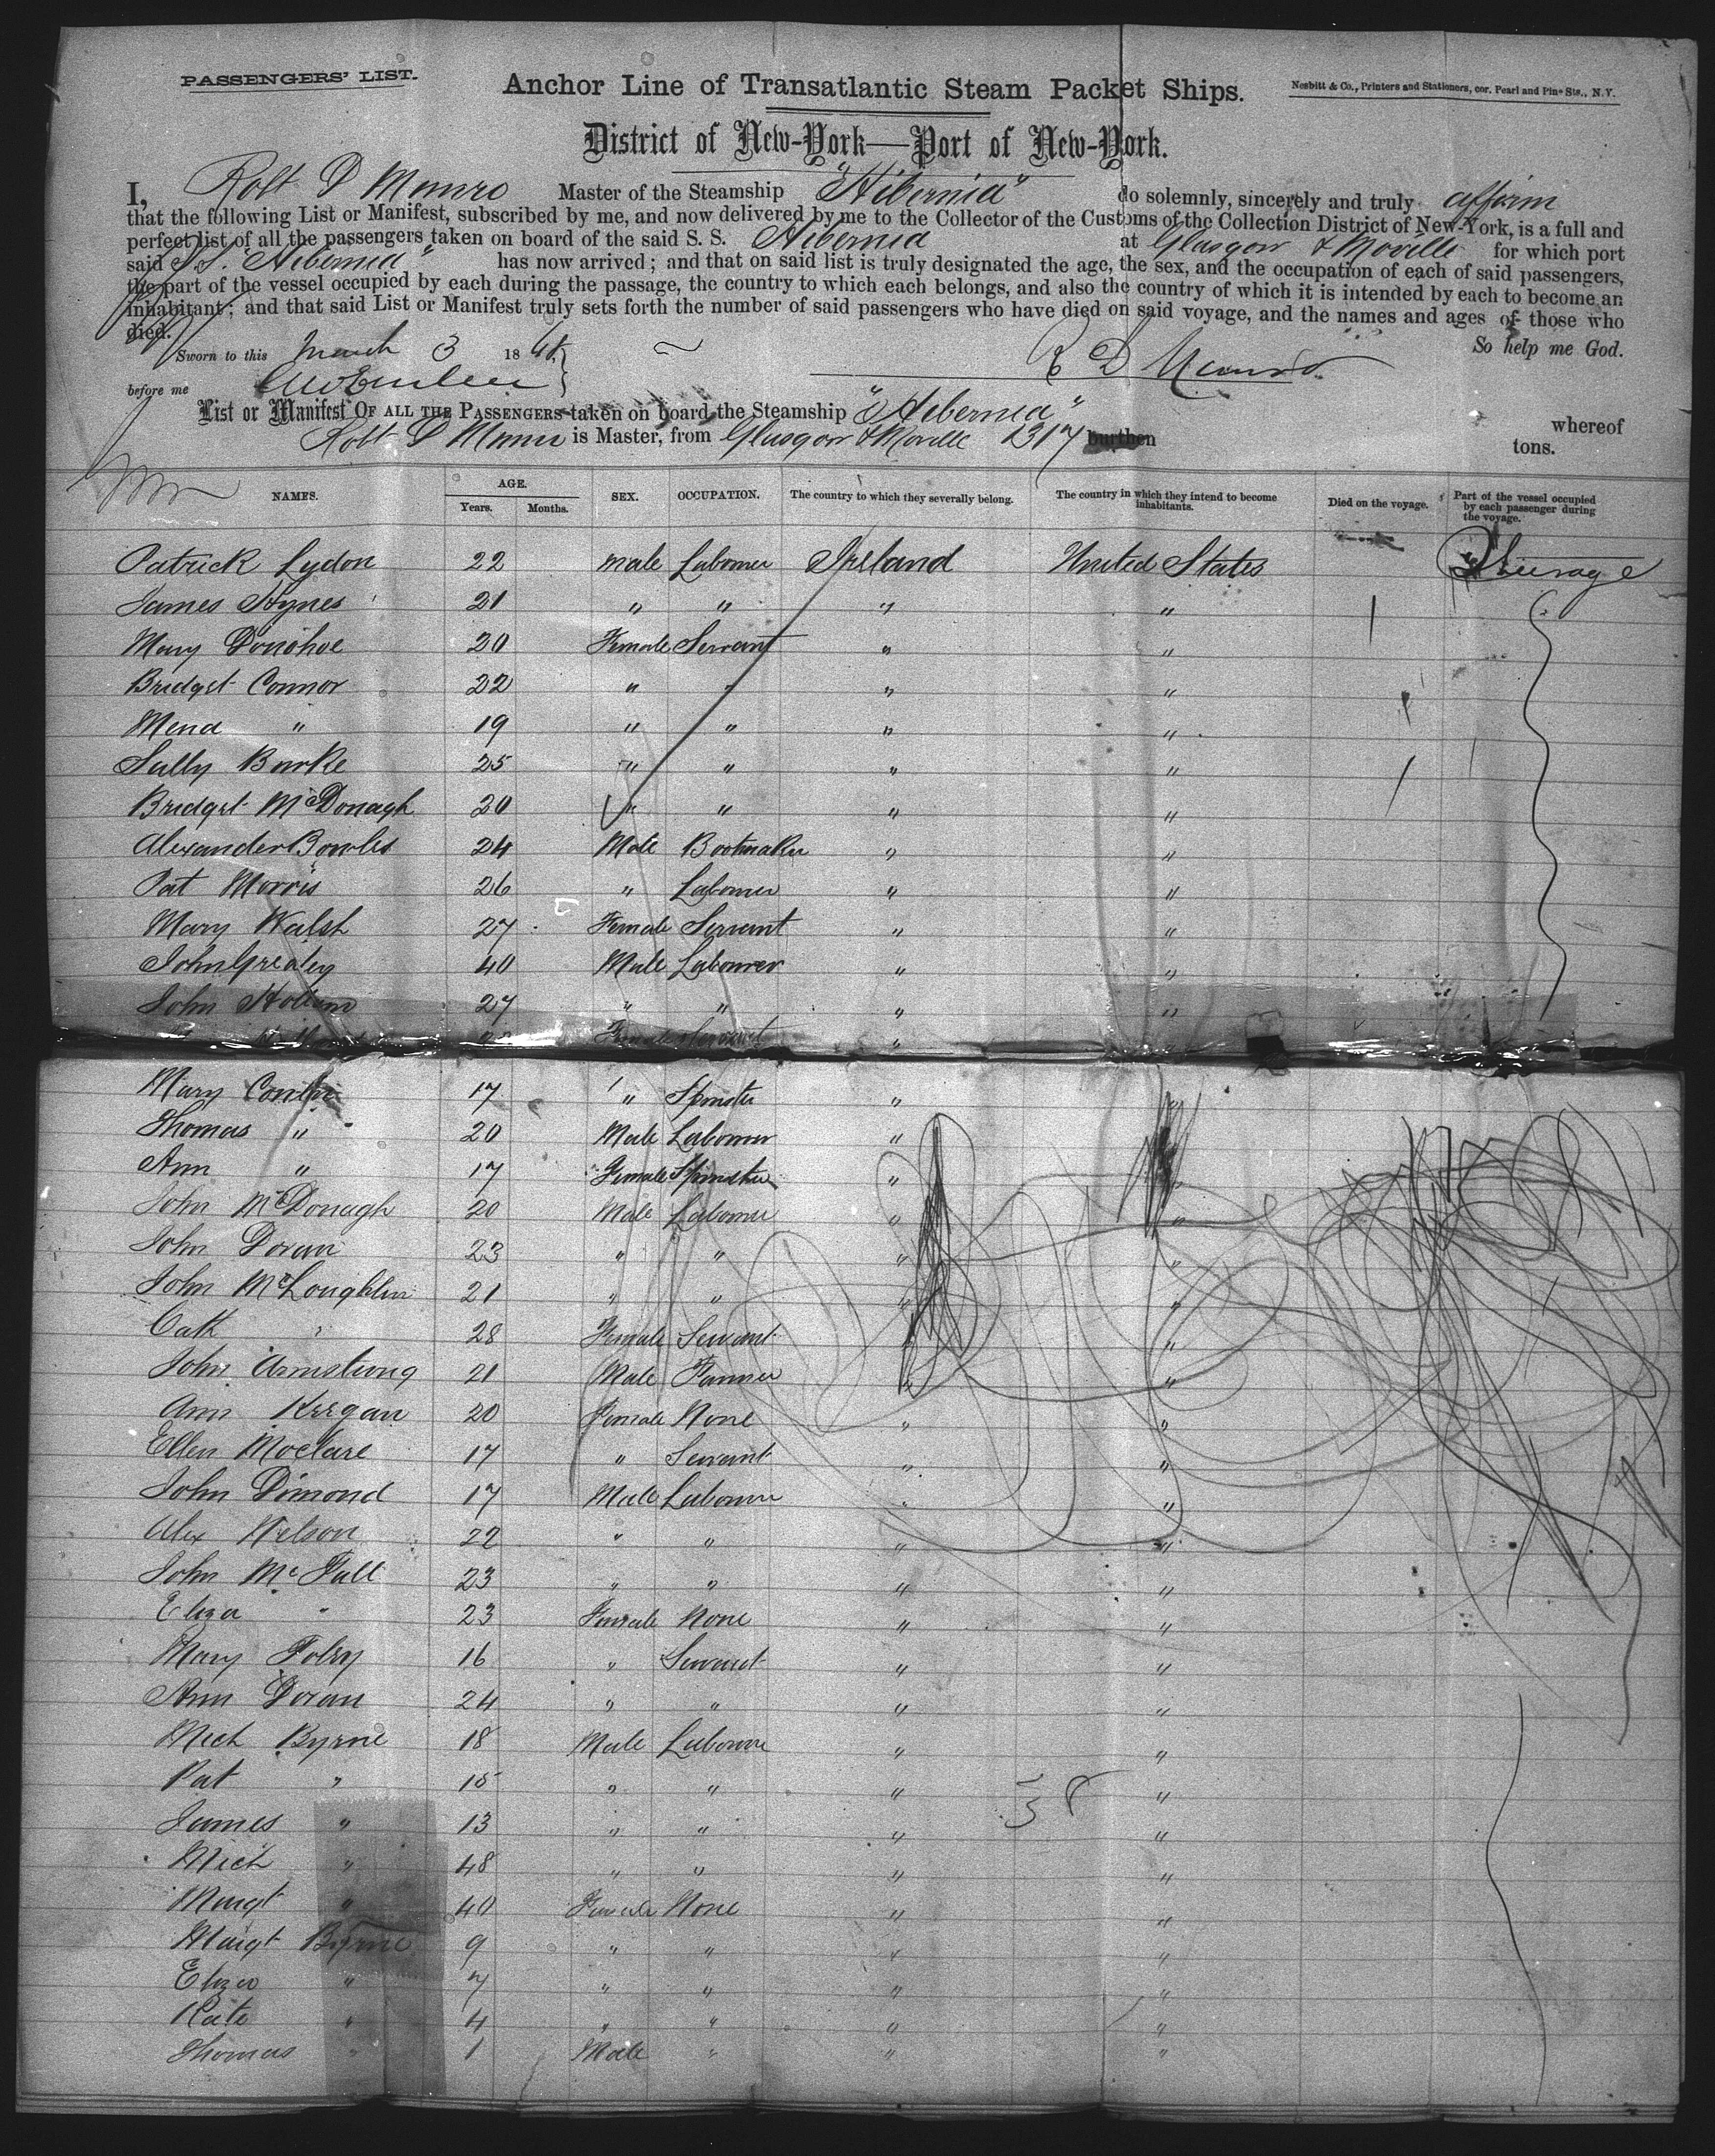 PASSENGERS' LIST.
Anchor Line of Transatlantic Steam Packet Ships.
Nesbitt & Co., Printers and Stationers, cor. Pearl and Pine Sts., N.Y.
District of New-York—Port of New-York.
I, Robt D Munro Master of the Steamship "Hibernia" do solemnly, sincerely and truly affirm
that the following List or Manifest, subscribed by me, and now delivered by me to the Collector of the Customs of the Collection District of New-York, is a full and
perfect list of all the passengers taken on board of the said S. S. Hibernia at Glasgow & Moville for which port
said S.S. "Hibernia" has now arrived; and that on said list is truly designated the age, the sex, and the occupation of each of said passengers,
the part of the vessel occupied by each during the passage, the country to which each belongs, and also the country of which it is intended by each to become an
inhabitant; and that said List or Manifest truly sets forth the number of said passengers who have died on said voyage, and the names and ages of those who
died.
So help me God.
Sworn to this March 3 186
R D Munro
before me
List or Manifest OF ALL THE PASSENGERS taken on board the Steamship "Hibernia" whereof
Robt D Munro is Master, from Glasgow & Moville 2317 burthen tons.
NAMES. AGE. Years. Months. SEX. OCCUPATION. The country to which they severally belong. The country in which they intend to become inhabitants. Died on the voyage. Part of the vessel occupied by each passenger during the voyage.
Patrick Lydon 22 male Labourer Ireland United States Steerage
James Hynes 21 " " " "
Mary Donohoe 20 Female Servant " "
Bridget Connor 22 " " " "
" 19 " " " "
Sally Burke 25 " " " "
Bridget McDonagh 20 " " " "
Alexander Bowles 24 Male Bootmaker " "
Pat Morris 26 " Labourer " "
Mary Walsh 27 Female Servant " "
John Grealey 40 Male Labourer " "
John 27 " " " "
Female Servant "
Mary 17 " Spinster " "
Thomas " 20 Male Labourer " "
Ann " 17 Female Spinster " "
John McDonagh 20 Male Labourer " "
John Doran 23 " " " "
John McLoughlin 21 " " " "
Cath " 28 Female Servant " "
John Armstrong 21 Male Farmer " "
Ann Keegan 20 Female None " "
Ellen Moclare 17 " Servant " "
John Dimond 17 Male Labourer " "
Alex Nelson 22 " " " "
John McFall 23 " " " "
Eliza " 23 Female None " "
Mary Foley 16 " Servant " "
Ann Doran 24 " " " "
Mich Byrne 18 Male Labourer " "
Pat " 15 " " " "
James " 13 " " " "
Mich " 48 " " " "
Margt " 40 Female None " "
Margt Byrne 9 " " " "
Eliza " 7 " " " "
Kate " 4 " " " "
Thomas " 1 Male " " "